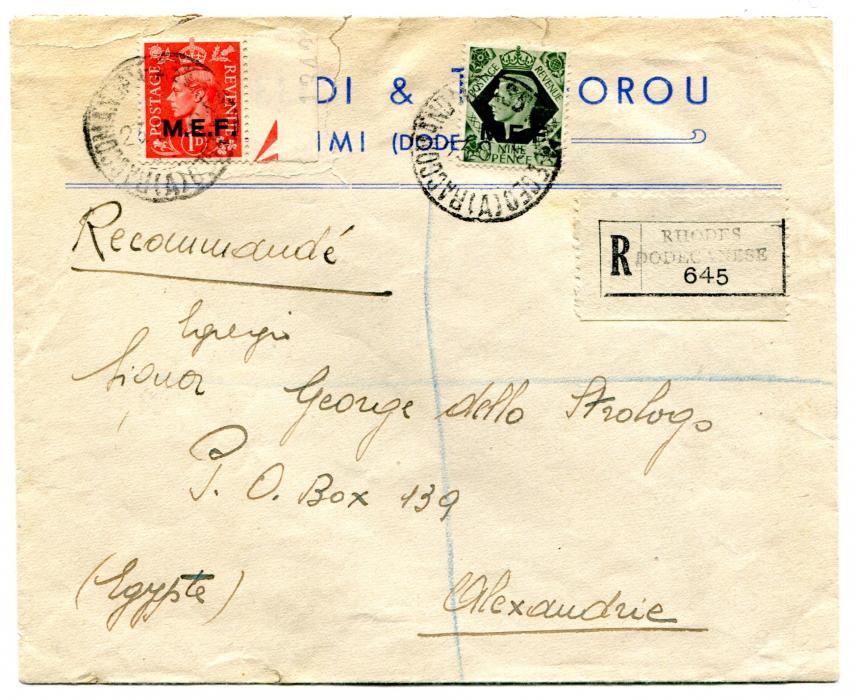 POSTAGE REVENUE
M.E.F.
1D
POSTAGE REVENUE
M.E.F.
NINE PENCE
DI & T OROU
IMI (DODE
RACCOMAN
EGEO(A)RACCOMAND
Recommandé
R RHODES
DODECANESE
645
Egregio
Signor George dello Strologo
P. O. Box 139
(Egypte) Alexandrie